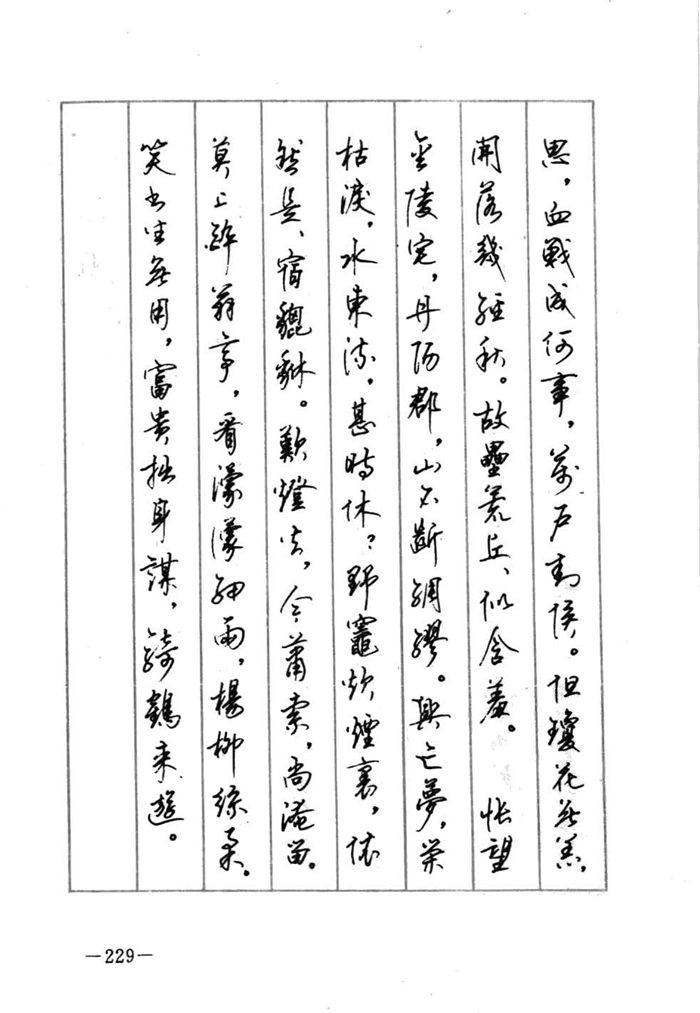 思，血戰成何事，萬戶封侯。但瓊花無恙，
開落幾經秋。故壘荒丘、似含羞。 悵望
金陵宅，丹陽郡，山不斷綢繆。興亡夢，榮
枯淚，水東流，甚時休？野竈炊煙裏，依
然是、宿貔貅。歎燈火，今蕭索，尚淹留。
莫上醉翁亭，看濛濛細雨，楊柳絲柔。
笑書生無用，富貴拙身謀，騎鶴來遊。
—229—